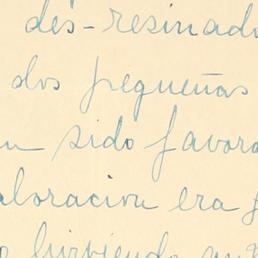 des-resinado
dos pequeñas
n sido favora
aloracion era f